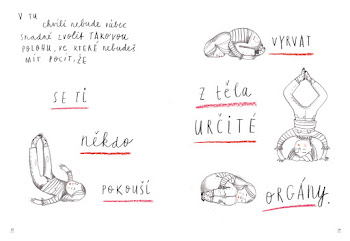 V TU
chvíli nebude vůbec
snadné zvolit TAKOVOU
POLOHU, VE KTERÉ NEBUDEŠ
MÍT POCIT, ŽE
SE TI
někdo
POKOUŠÍ
VYRVAT
z těla
URČITÉ
ORGÁNY.